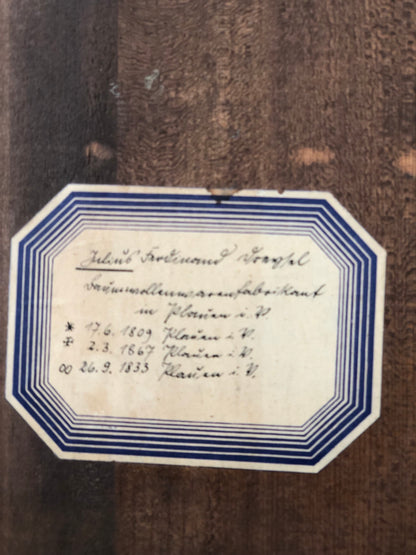 Julius Ferdinand Dreyßel
Baumwollenwarenfabrikant
in Plauen i. V.
* 17.6. 1809 Plauen i. V.
✠ 2.3. 1867 Plauen i. V.
∞ 26.9. 1833 Plauen i. V.